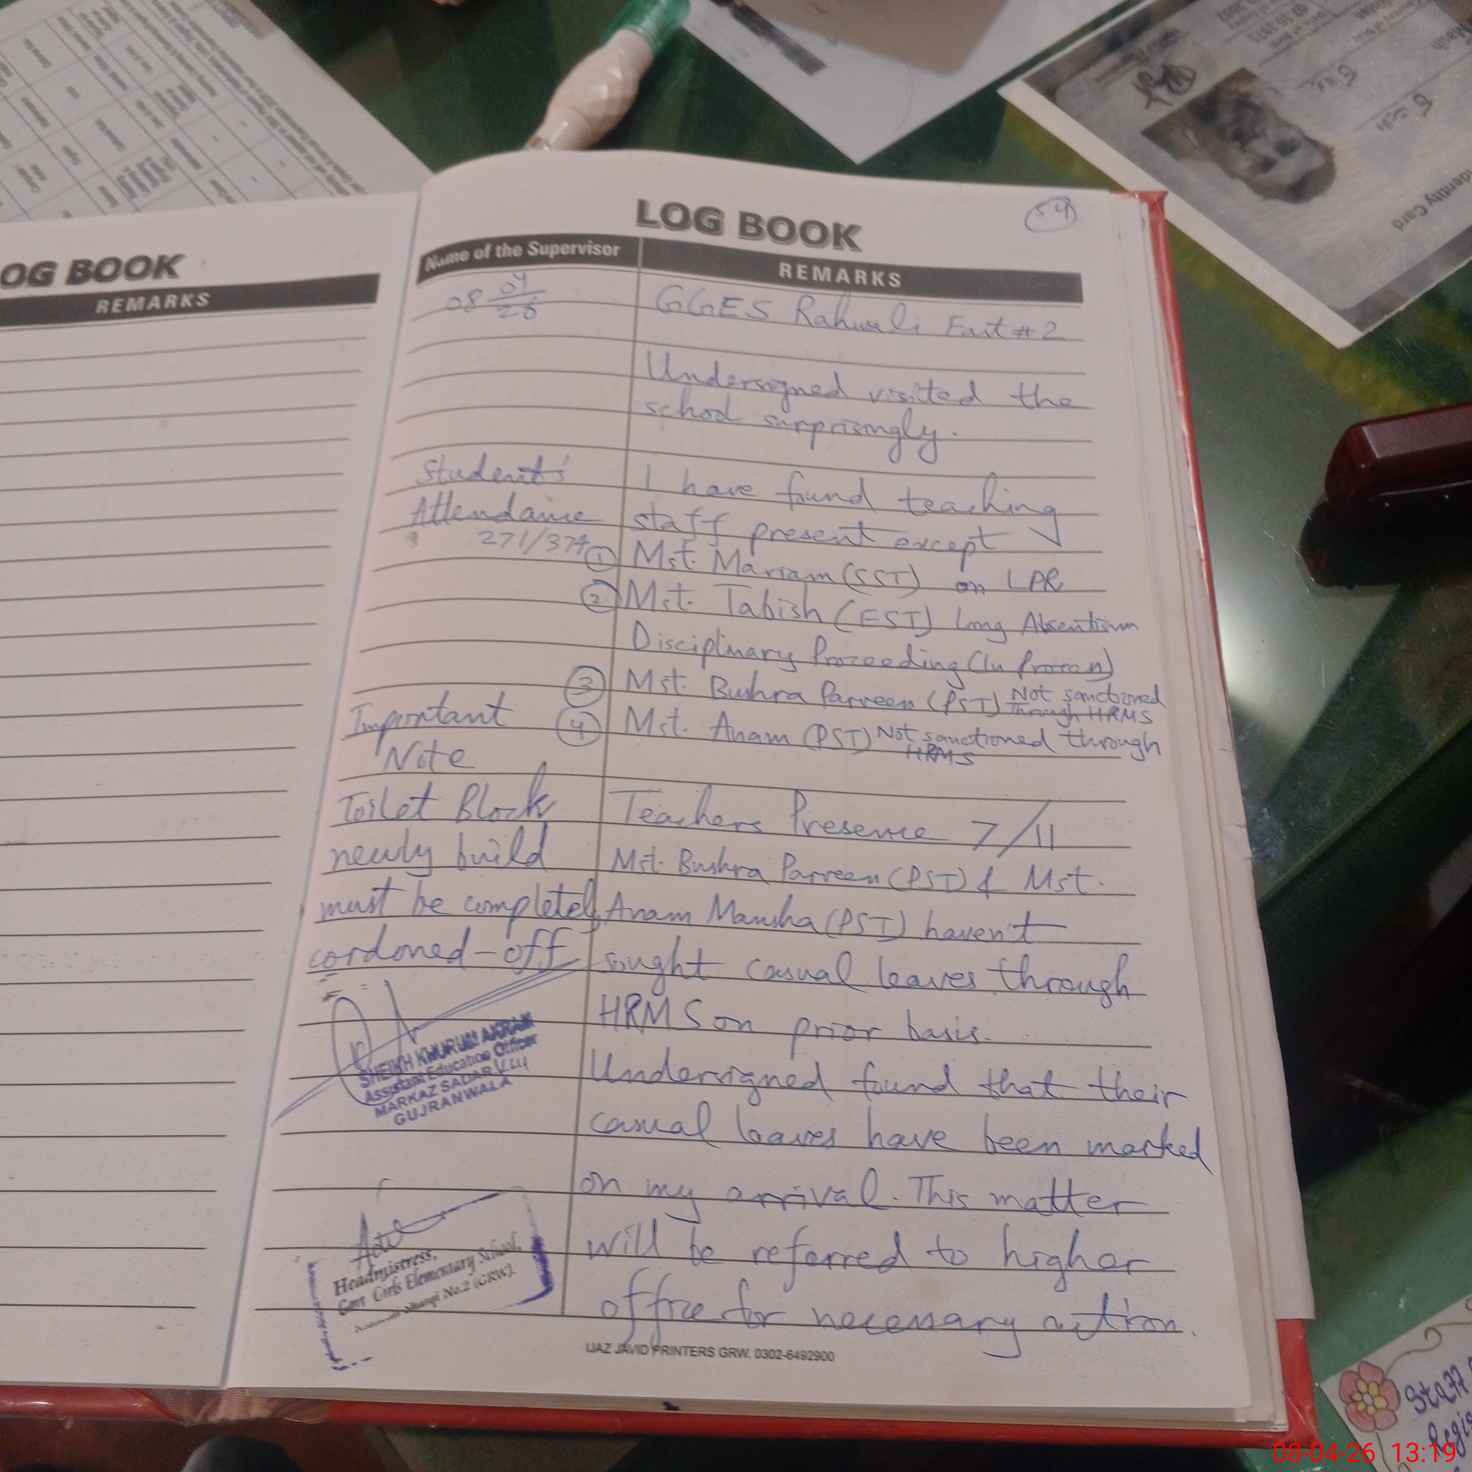 OG BOOK
REMARKS
LOG BOOK
54
Name of the Supervisor
REMARKS
08 04/26
GGES Rahwali East # 2
Undersigned visited the
school surprisingly.
Students'
Attendance
271/374
I have found teaching
staff present except
① Mst. Mariam (SST) on LPR
② Mst. Tabish (EST) Long Absentism
Disciplinary Proceeding (In Process)
③ Mst. Bushra Parveen (PST) Not sanctioned
Through HRMS
④ Mst. Anam (PST) Not sanctioned through
HRMS
Important
Note
Toilet Block
newly build
must be completely
cordoned-off
Teachers Presence 7/11
Mst. Bushra Parveen (PST) & Mst.
Anam Mansha (PST) haven't
sought casual leaves through
HRMS on prior basis.
Undersigned found that their
casual leaves have been marked
on my arrival. This matter
will be referred to higher
office for necessary action.
SHEIKH KHURUM AKRAM
Assistant Education Officer
MARKAZ SADAR
GUJRANWALA
Headmistress,
Govt. Girls Elementary School,
No.2 (GRW).
IJAZ JAVID PRINTERS GRW. 0302-6492900
Identity Card
Staff
08-04-26 13:19